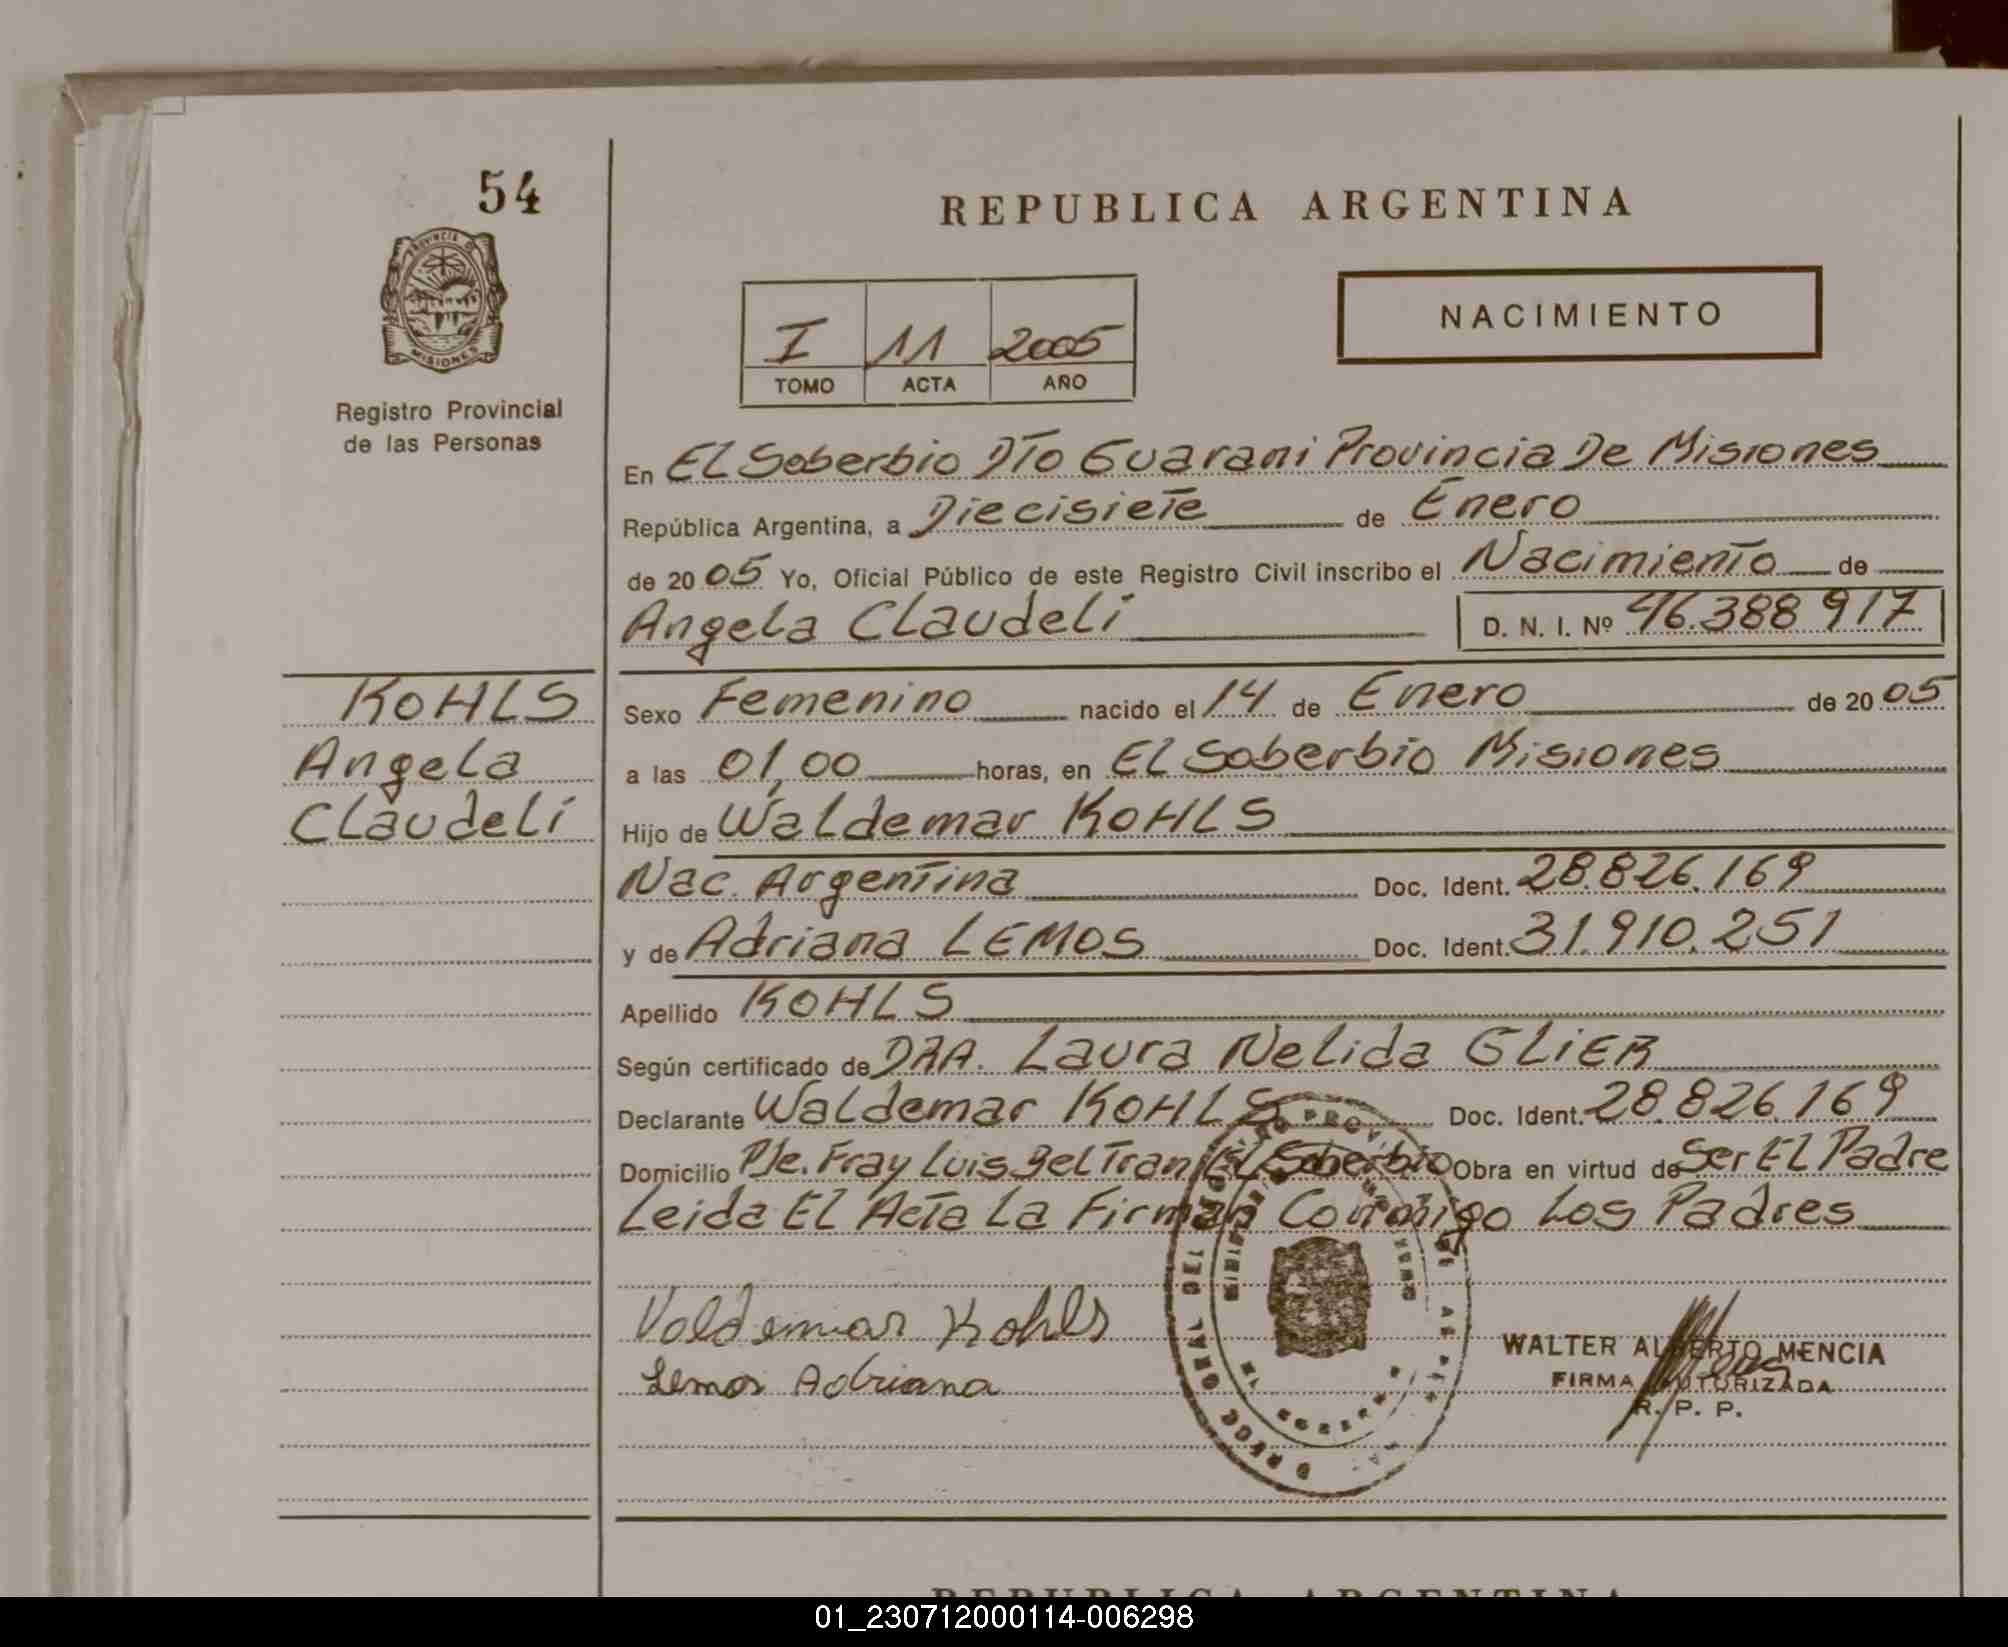 54
PROVINCIA DE
MISIONES
Registro Provincial
de las Personas
REPUBLICA ARGENTINA
I 11 2005
TOMO ACTA AÑO
NACIMIENTO
En El Soberbio Dto Guarani Provincia De Misiones
República Argentina, a Diecisiete de Enero
de 2005 Yo, Oficial Público de este Registro Civil inscribo el Nacimiento de
Angela Claudeli D. N. I. Nº 46.388 917
KOHLS
Angela
Claudeli
Sexo Femenino nacido el 14 de Enero de 2005
a las 01,00 horas, en El Soberbio Misiones
Hijo de Waldemar KOHLS
Nac. Argentina Doc. Ident. 28.826.169
y de Adriana LEMOS Doc. Ident. 31.910.251
Apellido KOHLS
Según certificado de DRA. Laura Nelida GLIER
Declarante Waldemar KOHLS Doc. Ident. 28.826.169
Domicilio Pje. Fray Luis Beltran El Soberbio Obra en virtud de Ser El Padre
Leida El Acta La Firman Conmigo Los Padres
Valdemar Kohls
Lemos Adriana
WALTER ALBERTO MENCIA
FIRMA AUTORIZADA
R. P. P.
REPUBLICA ARGENTINA
01_230712000114-006298